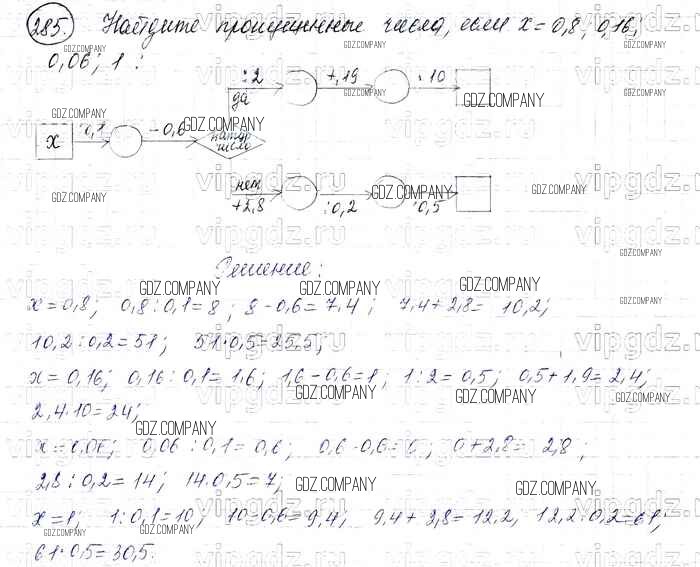 285. Найдите пропущенные числа, если x = 0,8; 0,16;
GDZ.COMPANY
GDZ.COMPANY
0,06; 1 :
:2 +1,9 ·10
да
GDZ.COMPANY
GDZ.COMPANY
GDZ.COMPANY
GDZ.COMPANY
vipgdz.ru
x :0,1 -0,6 натур. число
нет
GDZ.COMPANY
GDZ.COMPANY
GDZ.COMPANY
+2,8 :0,2 ·0,5
vipgdz.ru
Решение:
GDZ.COMPANY
GDZ.COMPANY
GDZ.COMPANY
GDZ.COMPANY
x = 0,8; 0,8 : 0,1 = 8; 8 - 0,6 = 7,4; 7,4 + 2,8 = 10,2;
GDZ.COMPANY
10,2 : 0,2 = 51; 51 · 0,5 = 25,5;
vipgdz.ru
x = 0,16; 0,16 : 0,1 = 1,6; 1,6 - 0,6 = 1; 1 : 2 = 0,5; 0,5 + 1,9 = 2,4;
GDZ.COMPANY
GDZ.COMPANY
GDZ.COMPANY
2,4 · 10 = 24;
GDZ.COMPANY
x = 0,06; 0,06 : 0,1 = 0,6; 0,6 - 0,6 = 0; 0 + 2,8 = 2,8;
GDZ.COMPANY
2,8 : 0,2 = 14; 14 · 0,5 = 7;
GDZ.COMPANY
GDZ.COMPANY
x = 1; 1 : 0,1 = 10; 10 - 0,6 = 9,4; 9,4 + 2,8 = 12,2; 12,2 : 0,2 = 61;
GDZ.COMPANY
GDZ.COMPANY
61 · 0,5 = 30,5.
vipgdz.ru